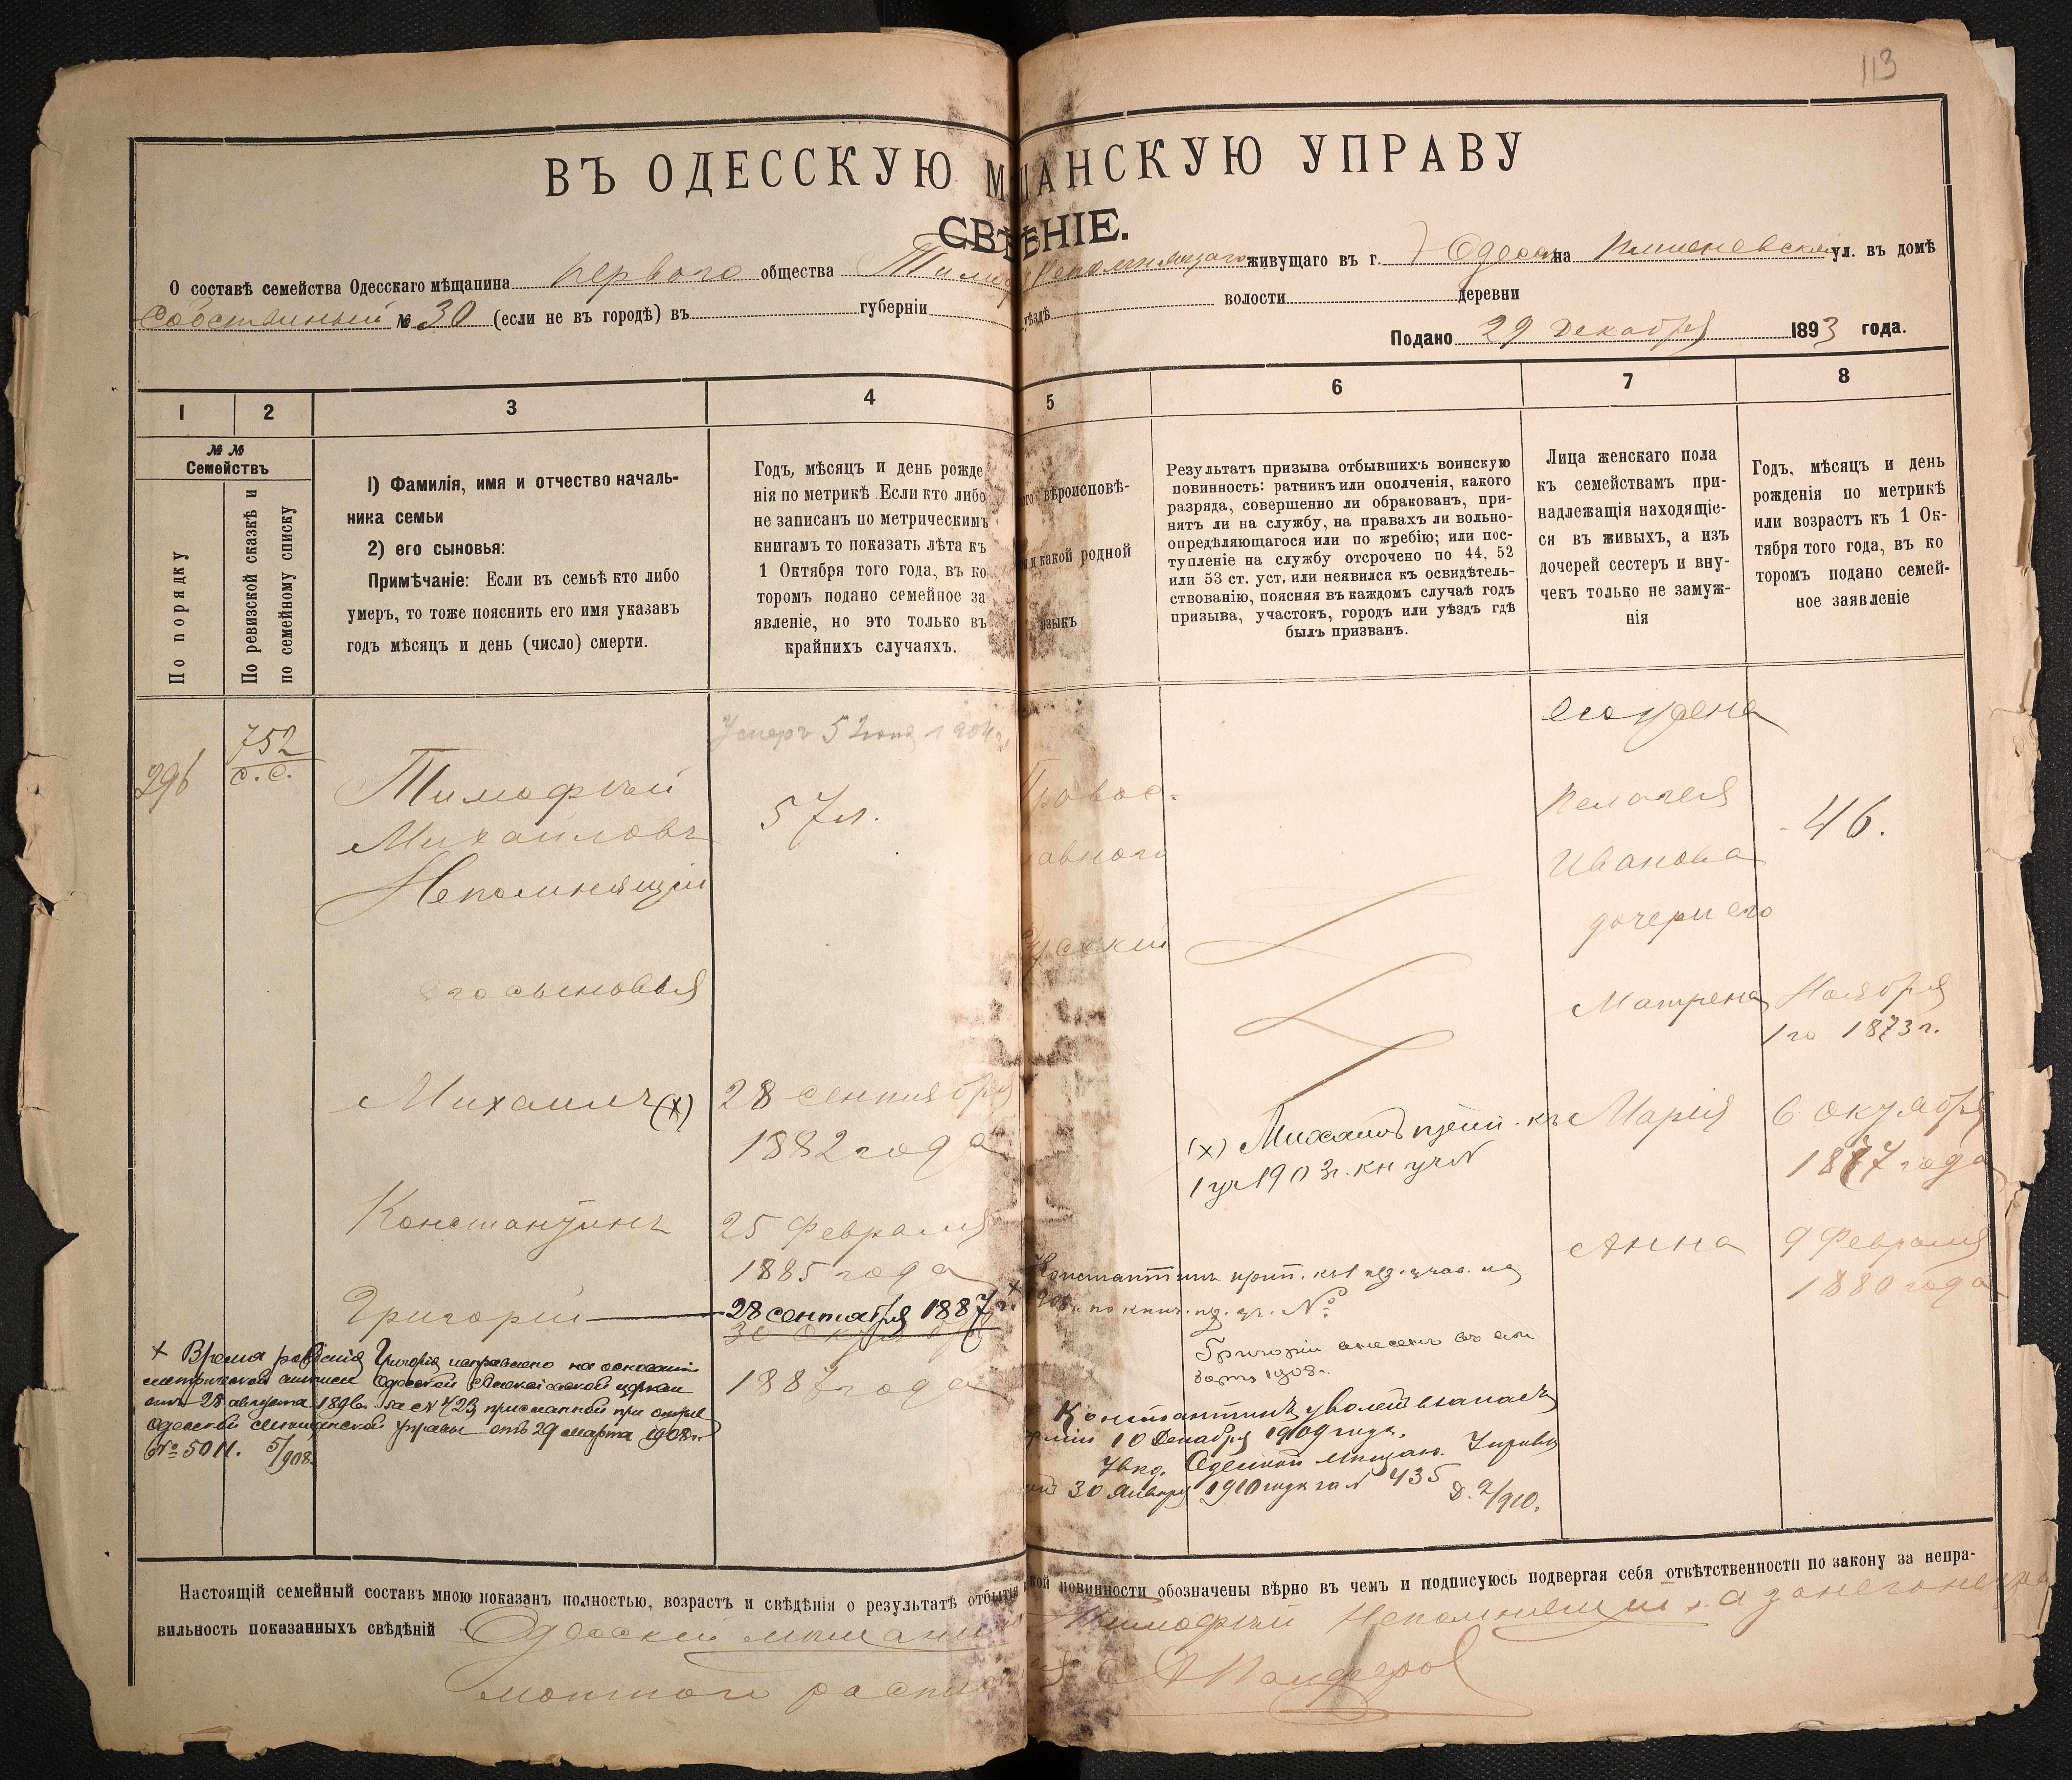 113
ВЪ ОДЕССКУЮ М ЩАНСКУЮ УПРАВУ
СВѢ ѢНІЕ.
О составѣ семейства Одесскаго мѣщанина первого общества Тимоф Непомнящаго живущаго въ г. Одессѣ на ул. въ домѣ
№ 30 (если не въ городѣ) въ губерніи уѣздѣ волости деревни
Подано 29 Декабря 1893 года.
1 2 3 4 5 6 7 8
№ №
Семействъ
По порядку
По ревизской сказкѣ и
по семейному списку
1) Фамилія, имя и отчество началь-
ника семьи
2) его сыновья:
Примѣчаніе: Если въ семьѣ кто либо
умеръ, то тоже пояснить его имя указавъ
годъ мѣсяцъ и день (число) смерти.
Годъ, мѣсяцъ и день рожде
нія по метрикѣ. Если кто либо
не записанъ по метрическимъ
книгамъ то показать лѣта къ
1 Октября того года, въ ко
торомъ подано семейное за
явленіе, но это только въ
крайнихъ случаяхъ.
ого вѣроисповѣ-
и какой родной
языкъ
Результатъ призыва отбывшихъ воинскую
повинность: ратникъ или ополченія, какого
разряда, совершенно ли обракованъ, при-
нятъ ли на службу, на правахъ ли вольно-
опредѣляющагося или по жребію; или пос-
тупленіе на службу отсрочено по 44, 52
или 53 ст. уст. или неявился къ освидѣтель-
ствованію, поясняя въ каждомъ случаѣ годъ
призыва, участокъ, городъ или уѣздъ гдѣ
былъ призванъ.
Лица женскаго пола
къ семействамъ при-
надлежащія находящіе-
ся въ живыхъ, а изъ
дочерей сестеръ и вну-
чекъ только не замуж-
нія
Годъ, мѣсяцъ и день
рожденія по метрикѣ
или возрастъ къ 1 Ок-
тября того года, въ ко
торомъ подано семей-
ное заявленіе
296
752
с. с.
Тимофѣй
Михайловъ
Непомнящій
его сыновья
Михаилъ (x)
Константинъ
Григорій
Умеръ 5 1904 г.
57 л.
28 сентября
1882 года
25 Февраля
1885 года
28 сентября 1887 г.
30 Октября
1887 года
Правос-
лавного
Русскій
(x) Михаилъ прип. къ
1 уч 1903 г. кн уч №
Константинъ прип. къ 1 уч.
№
Григорій внесенъ въ
1908 г.
Константинъ уволенъ въ запасъ
арміи 10 Декабря 1909 года.
Увѣд. Одесской мѣщанс. Управы
отъ 30 Января 1910 года за № 435
Д. 2/910.
его жена
Пелагея
Иванова
дочери его
Матрена
Марія
Анна
46.
Ноября
1го 1873 г.
6 октября
1877 года
9 Февраля
1880 года
x Время рожденія Григорія исправлено на основаніи
метрической выписи Одесской церкви
отъ 28 августа 189 г. за № 423 присланной при
Одесской Мѣщанской Управы отъ 29 марта 1908 г.
№ 5011. 5/908.
Настоящій семейный составъ мною показанъ полностью, возрастъ и свѣдѣнія о результатѣ отбытія кой повинности обозначены вѣрно въ чемъ и подписуюсь подвергая себя отвѣтственности по закону за непра-
вильность показанныхъ свѣдѣній Одесскій мѣщанинъ Тимофѣй Непомнящій, а за